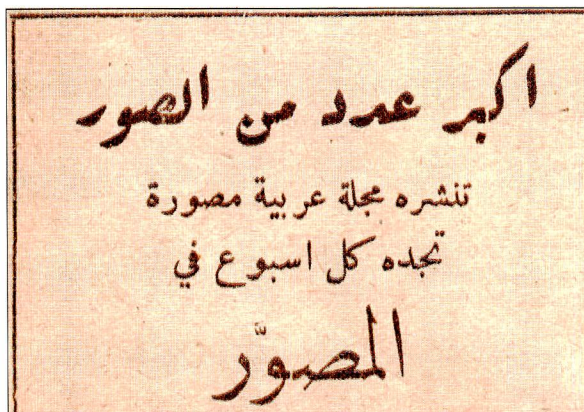 اكبر عدد من الصور
تنشره مجلة عربية مصورة
تجده كل اسبوع في
المصوَّر